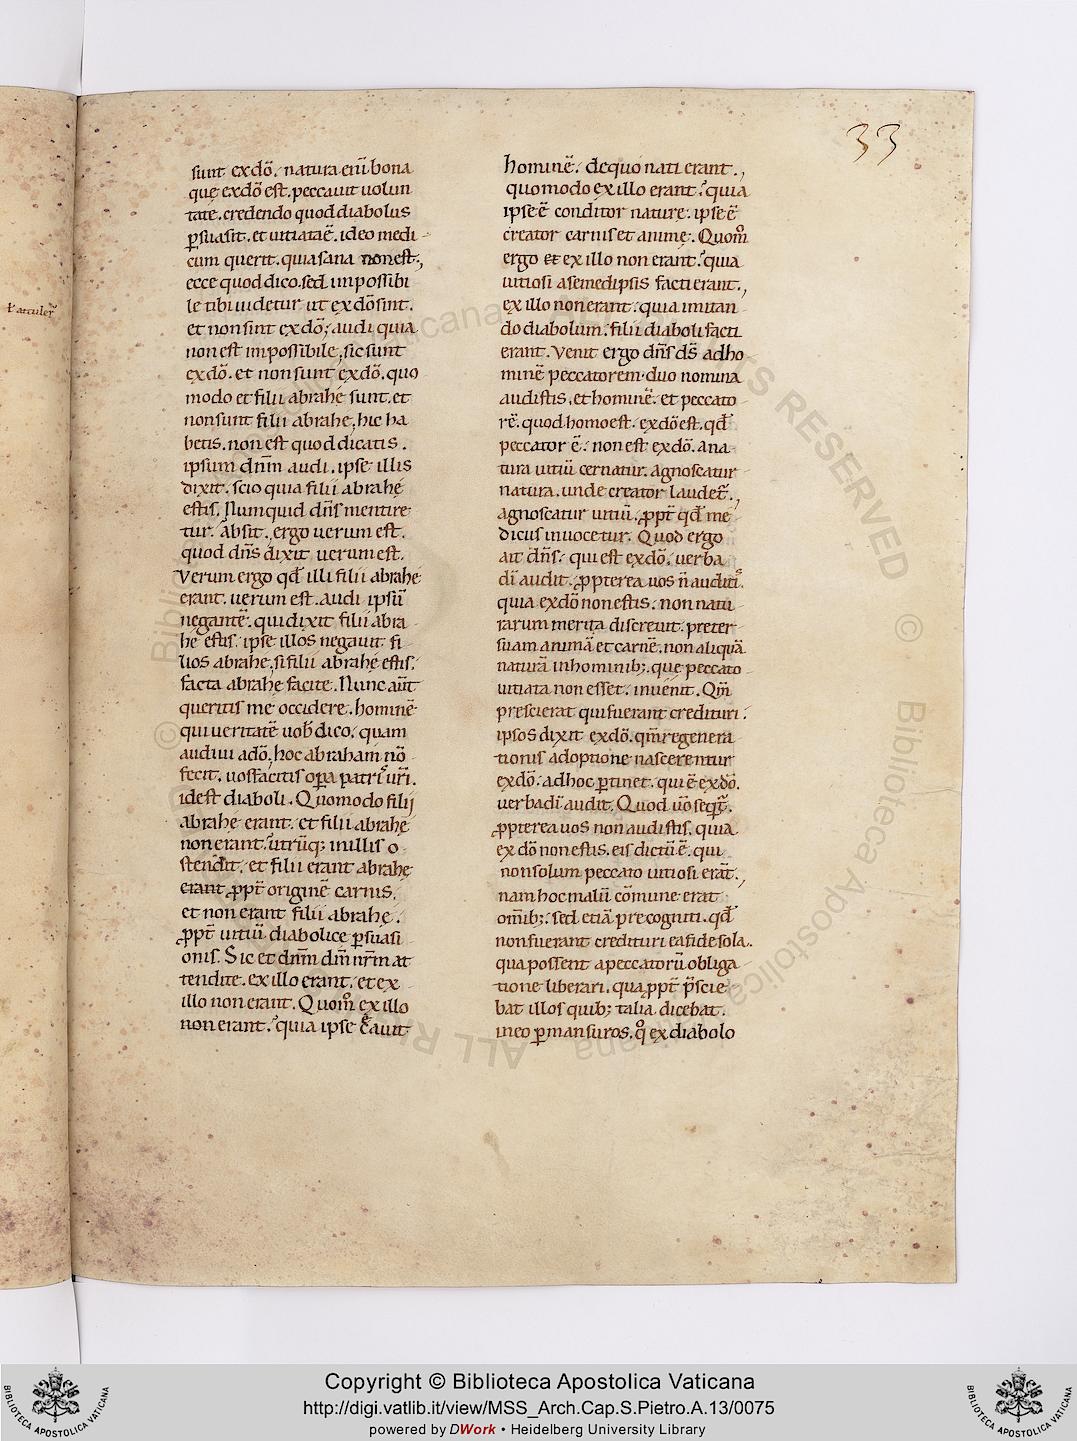 33
ł attuler̄
sunt ex dō. natura eni bona
quę ex dō est. peccauit uolun
tate. credendo quod diabolus
ꝑsuasit. et uitiata ē. ideo medi
cum querit. quia sana non est,
ecce quod dico. sed impossibi
le tibi uidetur ut ex dō sint.
et non sint ex dō; audi quia
non est impossibile, sic sunt
ex dō. et non sunt ex dō. quo
modo et filii abrahę sunt. et
non sunt filii abrahę, hic ha
betis. non est quod dicatis.
ipsum dnm̄ audi. ipse illis
dixit. scio quia filii abrahę
estis. Numquid dn̄s mentire
tur. Absit. ergo uerum est.
quod dn̄s dixit uerum est.
Verum ergo qđ illi filii abrahę
erant. uerum est. audi ipsū
negantē. qui dixit filii abra
hę estis. ipse illos negauit fi
lios abrahę. si filii abrahę estis.
facta abrahę facite. Nunc aūt
queritis me occidere. hominē
qui ueritatē uob̄ dico. quam
audiui a dō. hoc abraham nō
fecit. uos facitis oꝑa patriˢ ur̄i.
idest diaboli. Quomodo filij
abrahę erant. et filii abrahę
non erant. utrūq; in illis o
stendit. et filii erant abrahę
erant ꝓpt̄ originē carnis.
et non erant filii abrahę.
ꝓpt̄ uitiū diabolicę ꝑsuasi
onis. Sic et dnm̄ dm̄ nr̄m at
tendite. ex illo erant. et ex
illo non erant. Quom̊ ex illo
non erant. quia ipse c̄auit
hominē. de quo nati erant.,
quomodo ex illo erant. quia
ipse ē conditor naturę. ipse ē
creator carnis et animę. Quom̊
ergo et ex illo non erant. quia
uitiosi a semedipsis facti erant.,
ex illo non erant. quia imitan
do diabolum. filii diaboli facti
erant. Venit ergo dn̄s ds̄ ad ho
minē peccatorem. duo nomina
audistis, et hominē. et peccato
rē. quod homo est. ex dō est. qđ
peccator ē. non est ex dō. a na
tura uitiū cernatur. agnoscatur
natura. unde creator laudet̄.,
agnoscatur uitiū. ꝓpt̄ qđ me
dicus inuocetur. Quod ergo
ait dn̄s. qui est ex dō. uerba
di audit. ꝓpterea uos n̄ auditiˢ.
quia ex dō non estis. non natu
rarum merita discreuit. preter
suam animā et carnē. non aliquā
naturā in hominib; quę peccato
uitiata non esset. inuenit. Qm̄
prescierat qui fuerant credituri.
ipsos dixit ex dō. qm̄ regenera
tionis adoptione nascerentur
ex dō. ad hoc ꝑtinet. qui ē ex dō.
uerba di audit. Quod uō seqt̄.
ꝓpterea uos non audistis. quia
ex dō non estis. eis dictū ē. qui
non solum peccato uitiosi erāt.,
nam hoc malū cōmune erat
om̄ib;. sed etiā precogniti. qđ
non fuerant credituri ea fide sola.
qua possent a peccatorū obliga
tione liberari. quaꝓpt̄ p̄scie
bat illos quib; talia dicebat.
in eo ꝑmansuros. qͦ ex diabolo
Copyright © Biblioteca Apostolica Vaticana
http://digi.vatlib.it/view/MSS_Arch.Cap.S.Pietro.A.13/0075
powered by DWork • Heidelberg University Library
BIBLIOTECA APOSTOLICA VATICANA
BIBLIOTECA APOSTOLICA VATICANA